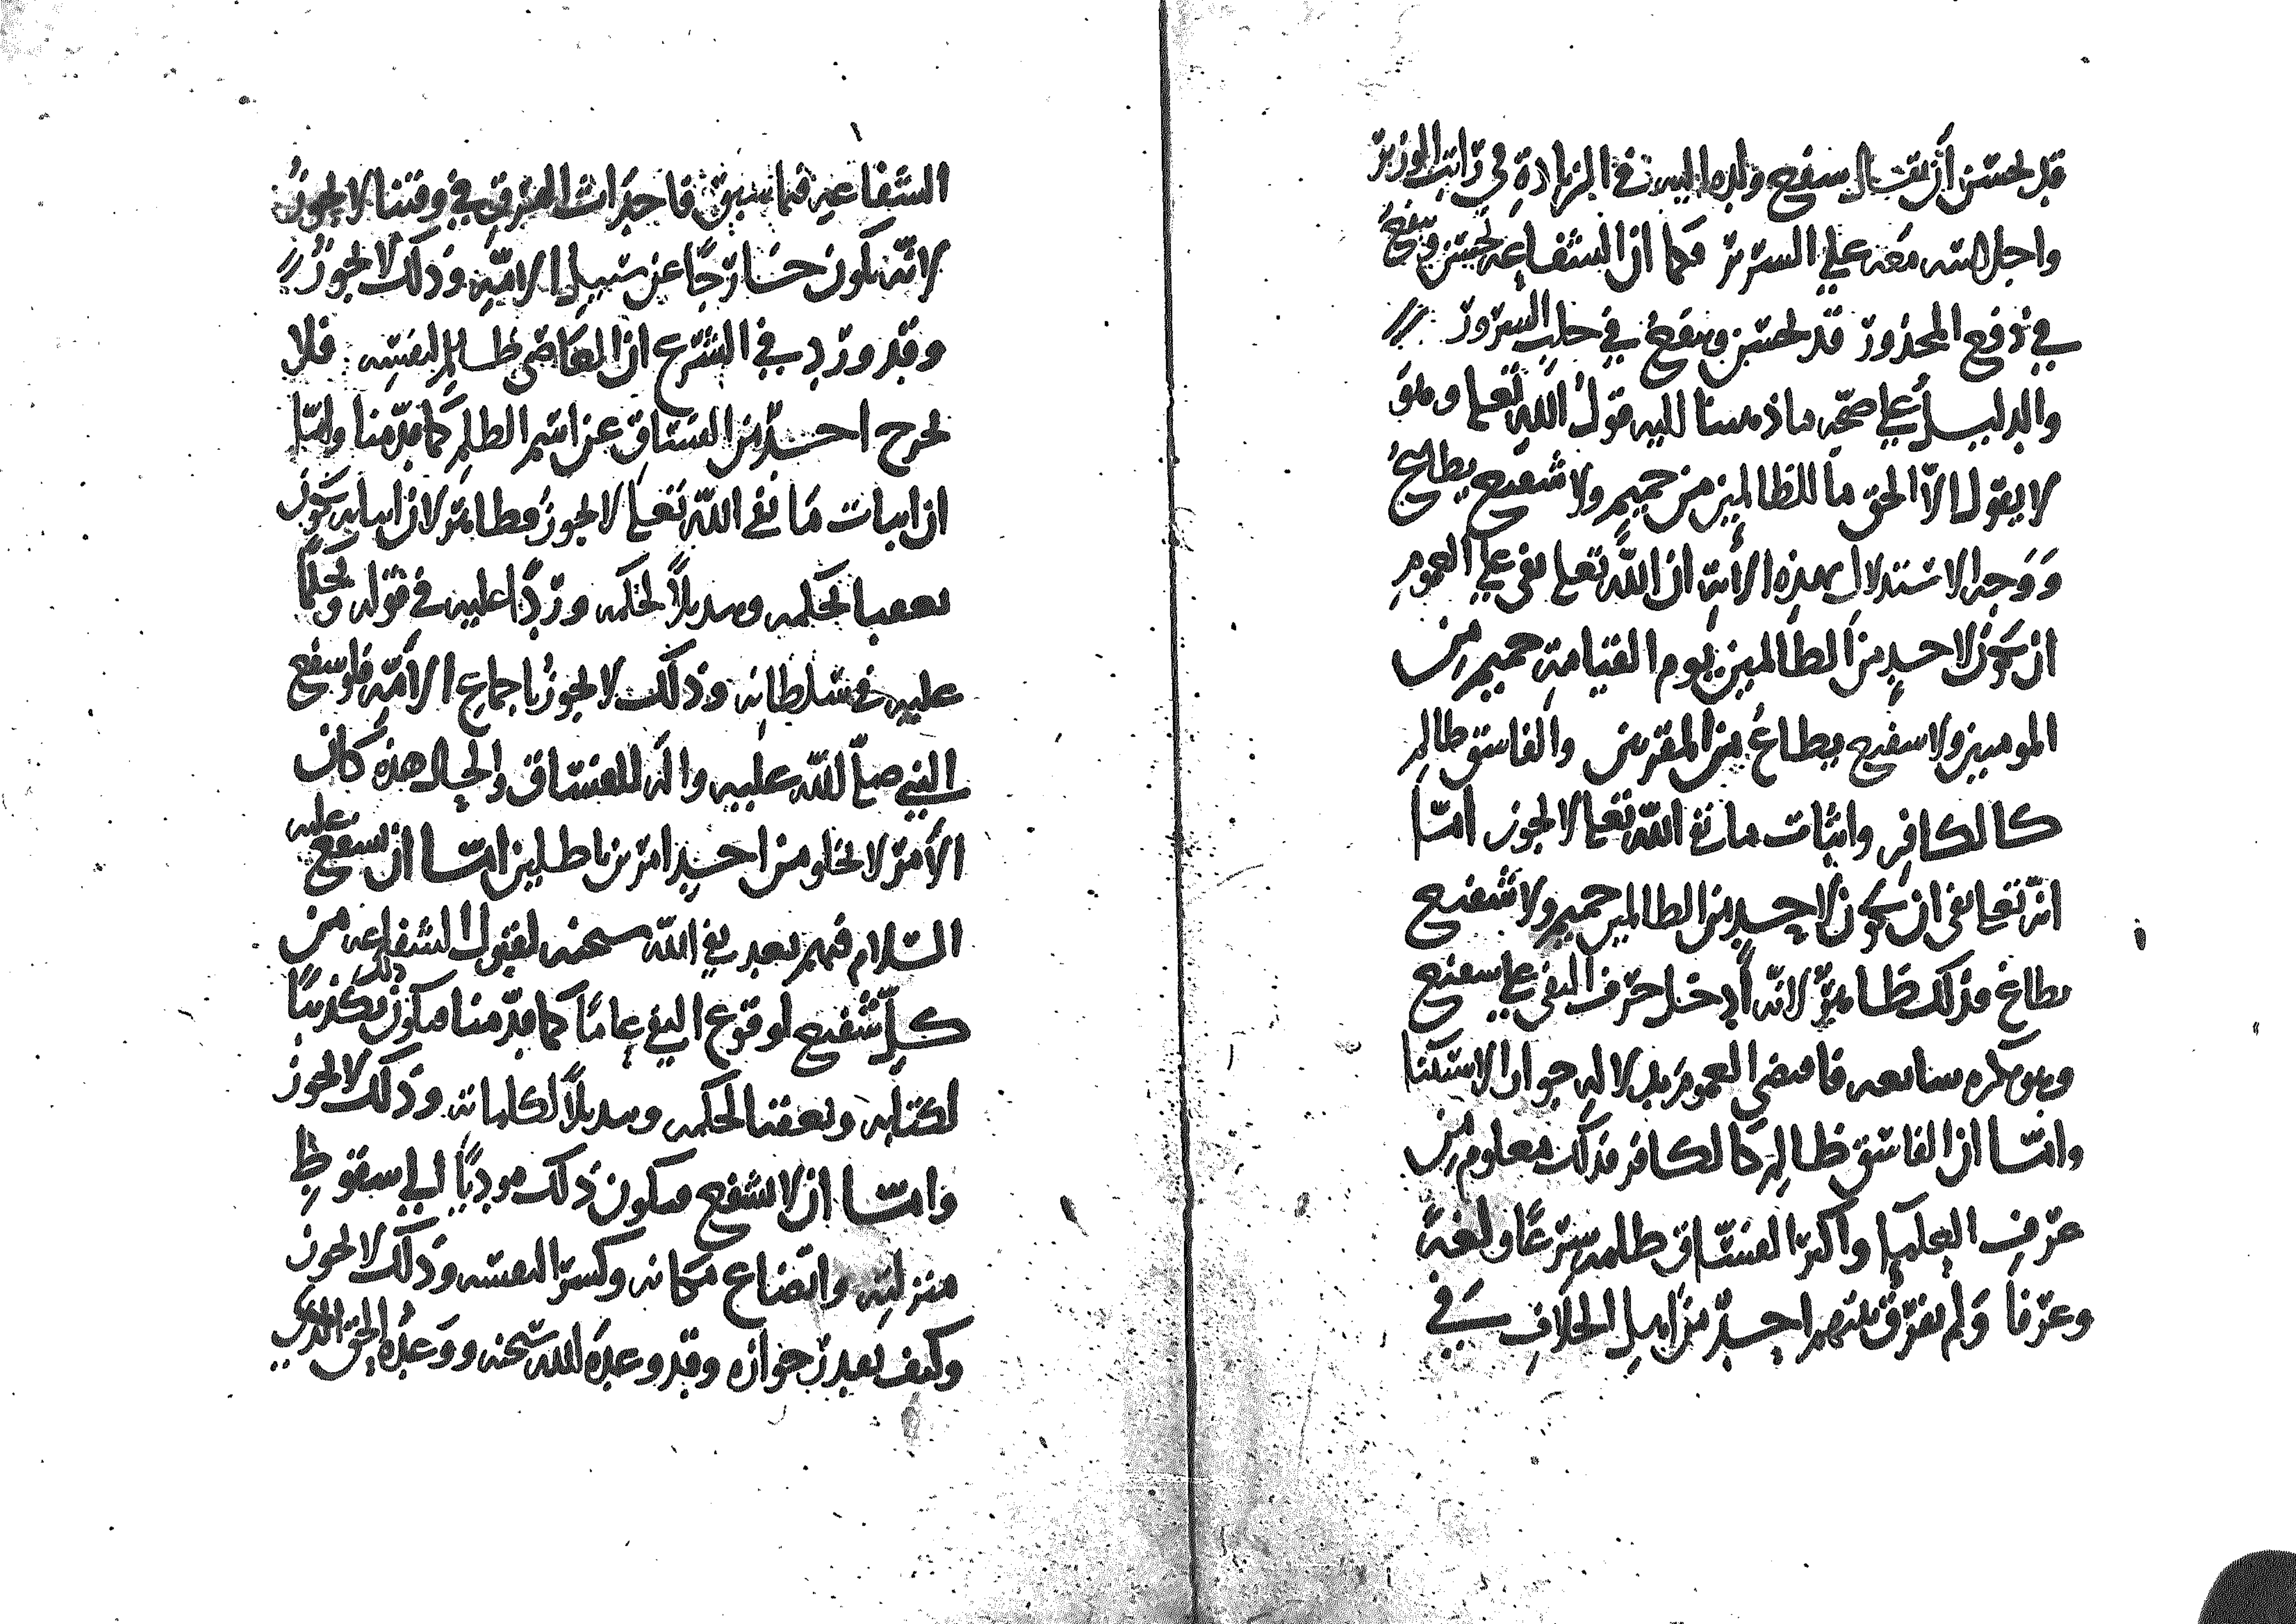 قد يحسن أن يقال يشفع ولده اليه في الزيادة في راتب الوزير
واجلاسه معه على السرير فكما ان الشفاعة تحسن وتنفع
في دفع المحذور قد تحسن وتنفع في جلب السرور
والدليل على صحة ما ذهبنا اليه قول الله تعالى وهو
لا يقول الا الحق ما للظالمين من حميم ولا شفيع يطاع
ووجه الاستدلال بهذه الآية ان الله تعالى نفى على العموم
ان يكون لاحد من الظالمين يوم القيامة حميم من
المومنين ولا شفيع يطاع من المقربين والفاسق ظالم
كالكافر واثبات ما نفى الله تعالى لا يجوز امّا
انه تعالى نفى ان يكون لاحد من الظالمين حميم ولا شفيع
يطاع فذلك ظاهر لانه أدخل حرف النفي على شفيع
وهو نكره شايعه فاقتضى العموم بدلاله جواز الاستثنا
وامّا ان الفاسق ظالم كالكافر فذلك معلوم من
عرف العلمآ واكثر الفسّاق ظلمه شرعًا ولغةً
وعرفا ولم يفرق بينهم احدٌ من اهل الخلاف في
الشفاعه فيما سبق فاحداث الفرق في وقتنا لا يجوز
لانّه يكون خارجًا عن سبيل الامّة وذلك لا يجوز
وقد ورد في الشرع ان العاصي ظالم لنفسه فلا
يخرج احدٌ من الفسّاق عن اسم الظلم كما قدّمنا وامّا
ان اثبات ما نفى الله تعالى لا يجوز فظاهر لان اثباته يكون
تعقبا لحكمه وتبديلًا لحكمه وردًا عليه في قوله وتحكمًا
عليه في سلطانه وذلك لا يجوز باجماع الأمّة فلو شفع
النبي صلى الله عليه واله للفسّاق والحال هذه كان
الأمر لا يخلو من احد امرين باطلين امّا ان يشفع عليه
السّلام فيهم بعد نفي الله سبحنه لقبول الشفاعه من
كلّ شفيع لوقوع النفي عامًا كما قدّمنا فيكون ذلك تكذيبًا
لكتابه وتعقبا لحكمه وتبديلًا لكلماته وذلك لا يجوز
وامّا ان لا يشفع فيكون ذلك موديًا الى سقوط
منزلته واتضاع مكانه وكسرًا لنفسه وذلك لا يجوز
وكيف نعيد جوازه وقد وعده الله سبحنه ووعده الحق الذي